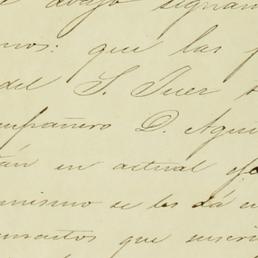 abajo signan
mos: que las
del S. Juez
compañero D. Agus
tán en actual eje
mismo se les dá en
cumentos que suscri